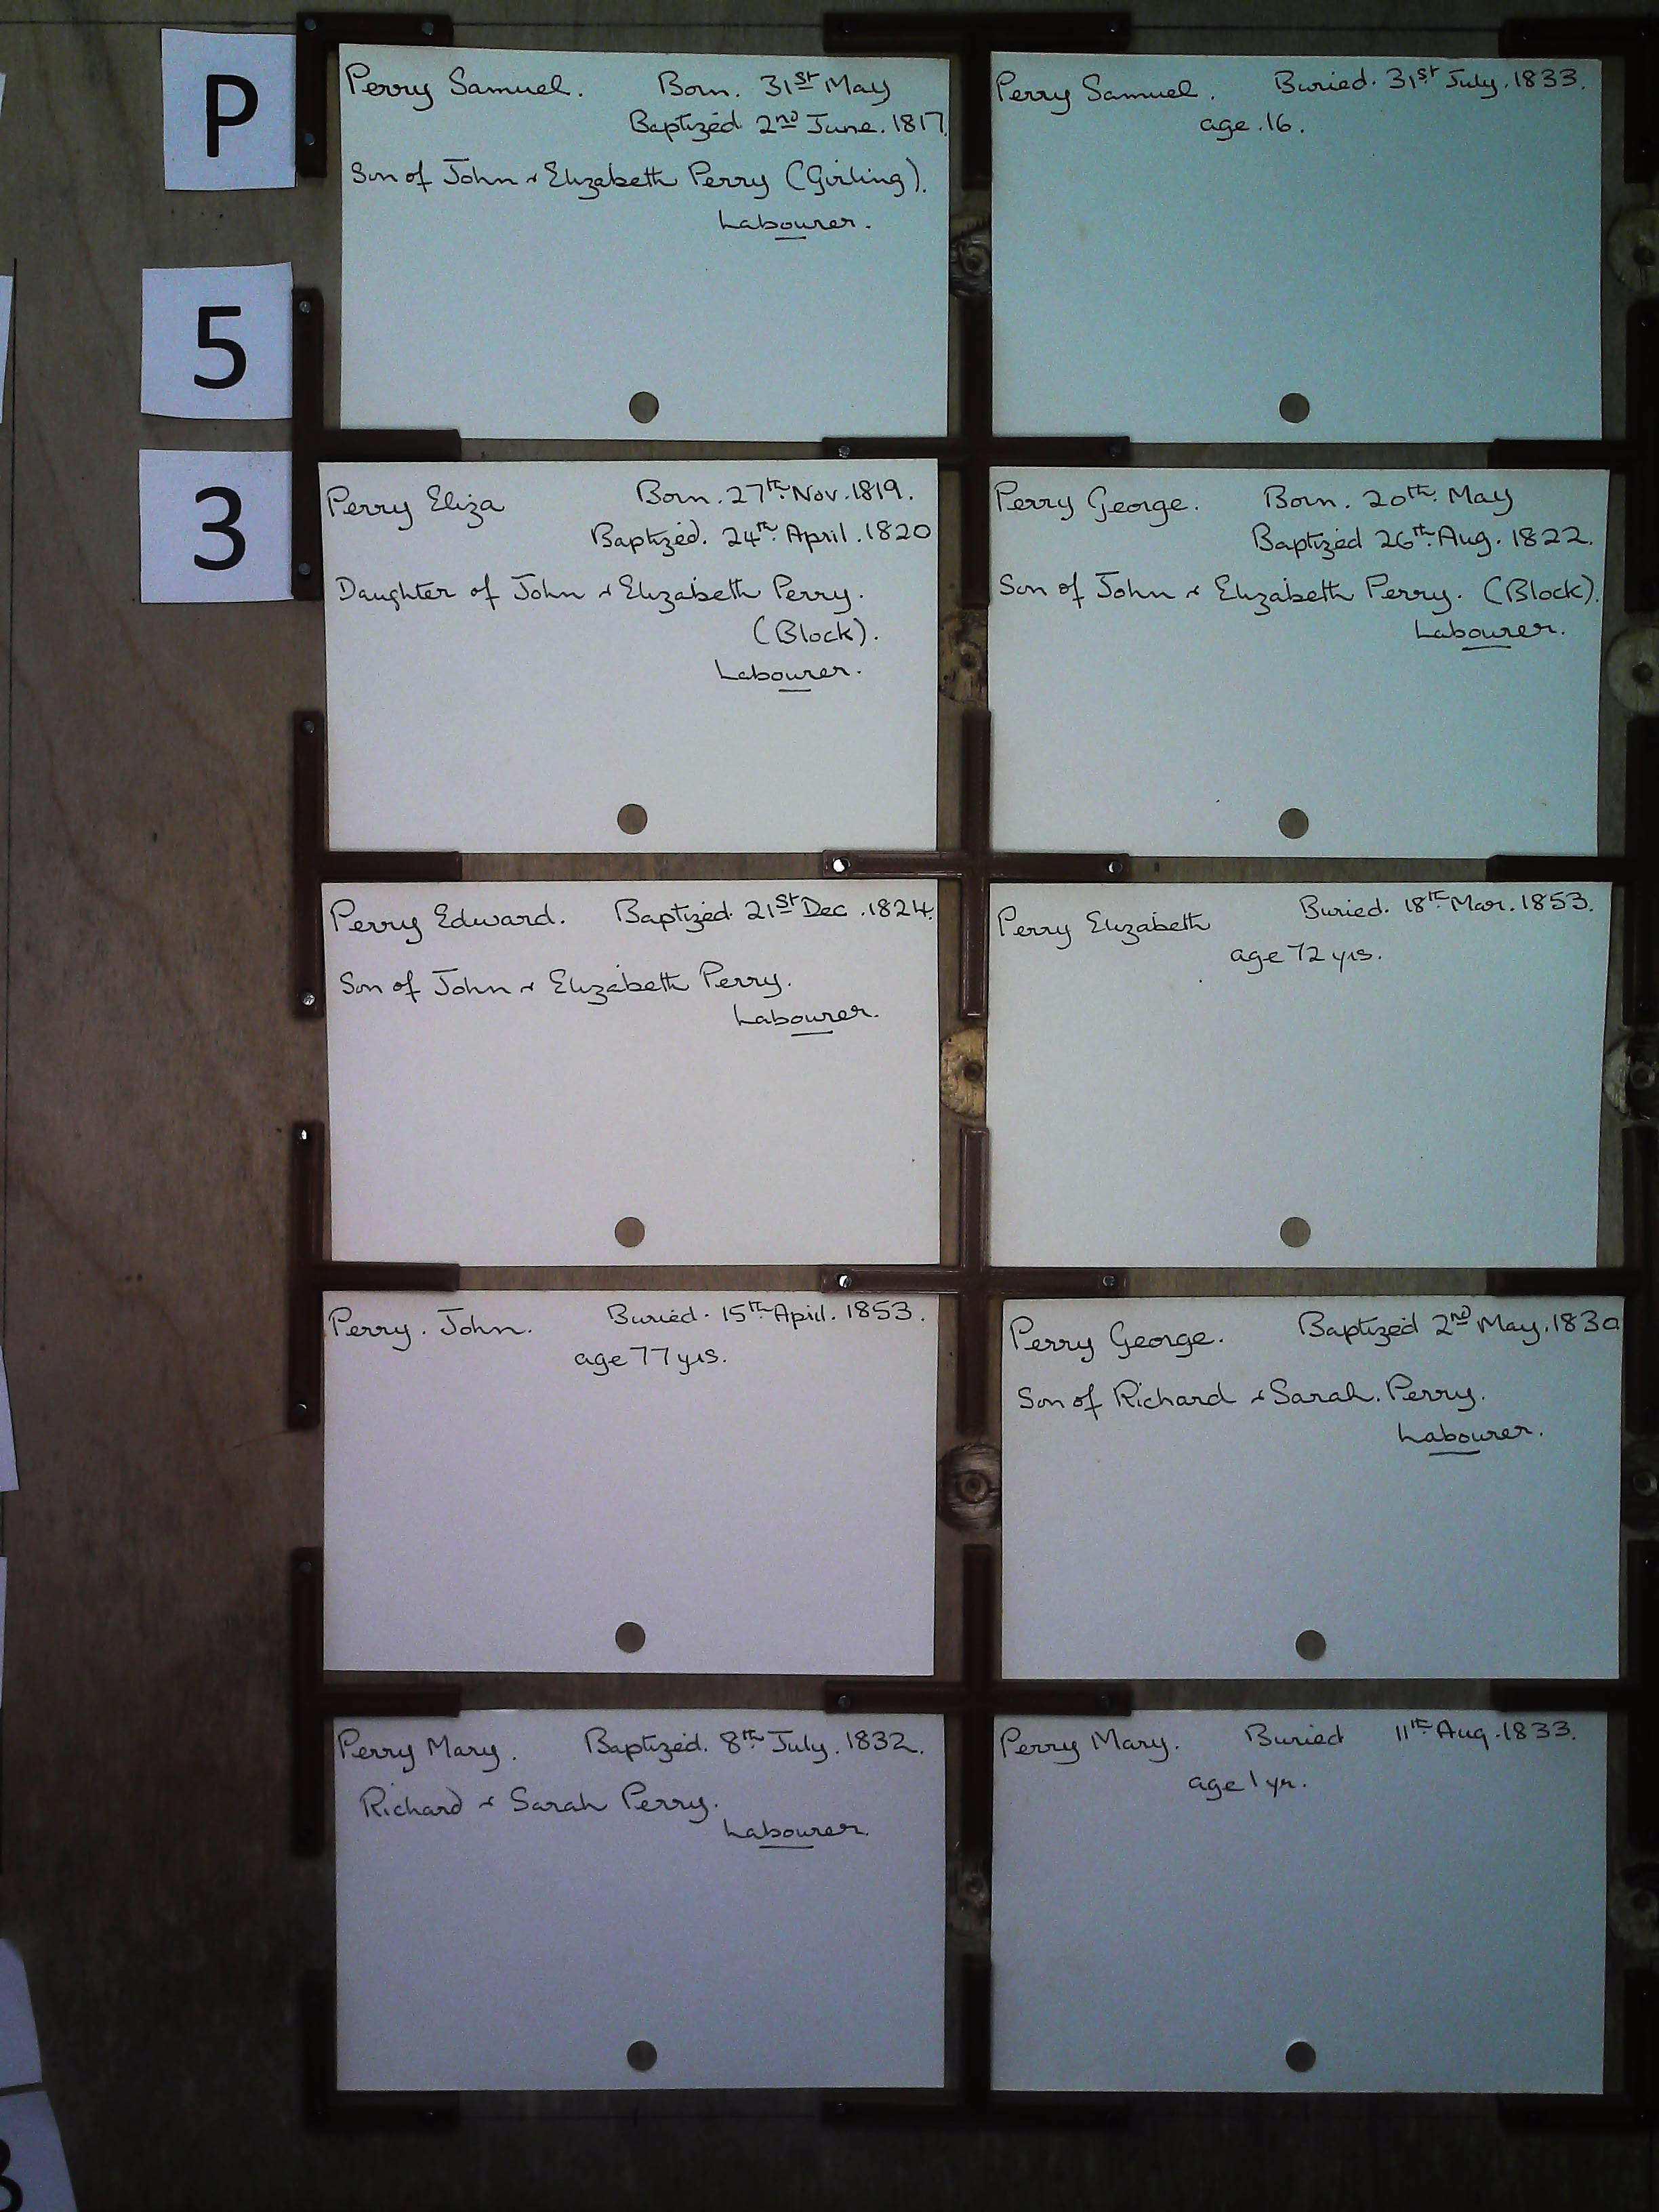 P
5
3
Perry Samuel. Born. 31st May
Baptized 2nd June. 1817
Son of John & Elizabeth Perry (Girling).
Labourer.
Perry Samuel. Buried. 31st July. 1833.
age. 16.
Perry Eliza Born. 27th Nov. 1819.
Baptized. 24th April. 1820
Daughter of John & Elizabeth Perry.
(Block).
Labourer.
Perry George. Born. 20th May
Baptized 26th Aug. 1822.
Son of John & Elizabeth Perry. (Block).
Labourer.
Perry Edward. Baptized 21st Dec. 1824.
Son of John & Elizabeth Perry.
Labourer.
Perry Elizabeth Buried. 18th Mar. 1853.
age 72 yrs.
Perry. John. Buried. 15th April. 1853.
age 77 yrs.
Perry George. Baptized 2nd May. 1830
Son of Richard & Sarah. Perry.
Labourer.
Perry Mary. Baptized. 8th July. 1832.
Richard & Sarah Perry.
Labourer.
Perry Mary. Buried 11th Aug. 1833.
age 1 yr.